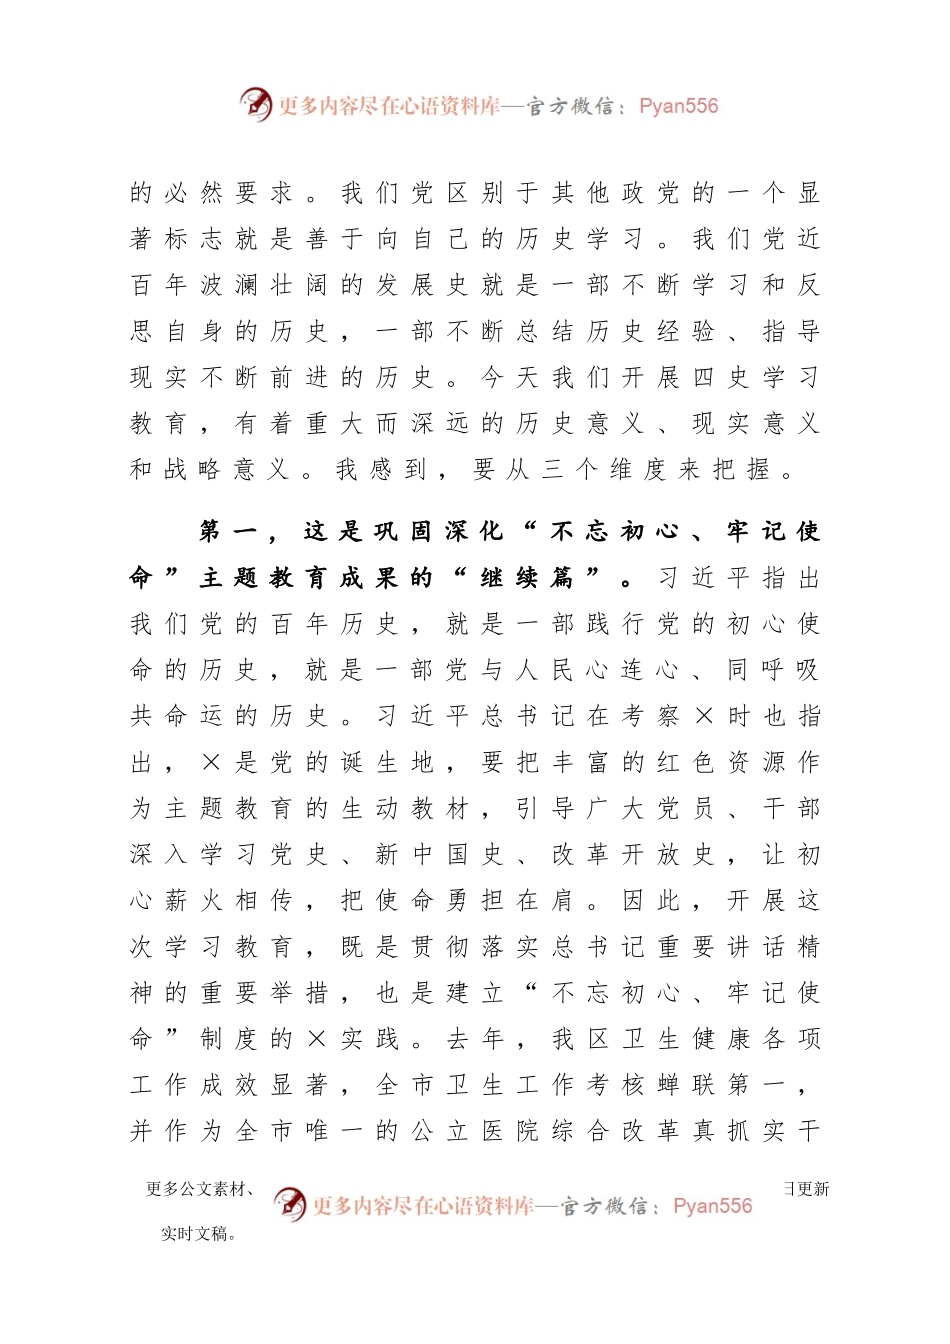 更多内容尽在心语资料库—官方微信：Pyan556
的必然要求。我们党区别于其他政党的一个显
著标志就是善于向自己的历史学习。我们党近
百年波澜壮阔的发展史就是一部不断学习和反
思自身的历史，一部不断总结历史经验、指导
现实不断前进的历史。今天我们开展四史学习
教育，有着重大而深远的历史意义、现实意义
和战略意义。我感到，要从三个维度来把握。
第一，这是巩固深化“不忘初心、牢记使
命”主题教育成果的“继续篇”。习近平指出
我们党的百年历史，就是一部践行党的初心使
命的历史，就是一部党与人民心连心、同呼吸
共命运的历史。习近平总书记在考察×时也指
出，×是党的诞生地，要把丰富的红色资源作
为主题教育的生动教材，引导广大党员、干部
深入学习党史、新中国史、改革开放史，让初
心薪火相传，把使命勇担在肩。因此，开展这
次学习教育，既是贯彻落实总书记重要讲话精
神的重要举措，也是建立“不忘初心、牢记使
命”制度的×实践。去年，我区卫生健康各项
工作成效显著，全市卫生工作考核蝉联第一，
并作为全市唯一的公立医院综合改革真抓实干
更多公文素材、 更多内容尽在心语资料库—官方微信：Pyan556 日更新
实时文稿。